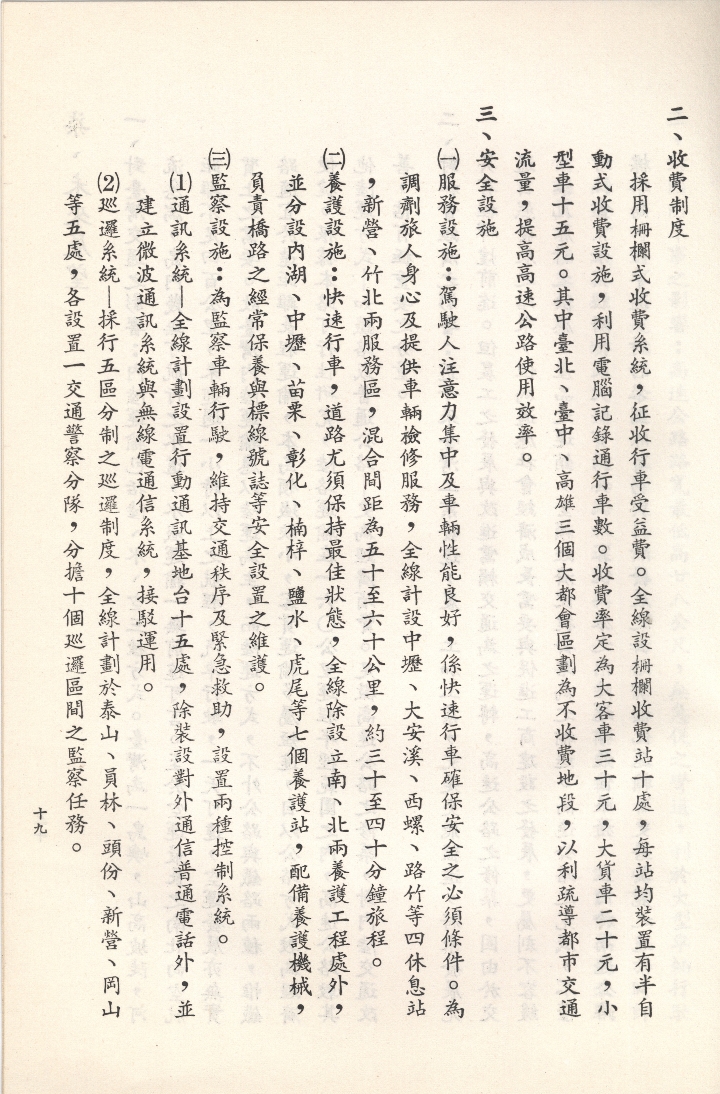 二、收費制度
採用柵欄式收費系統，征收行車受益費。全線設柵欄收費站十處，每站均裝置有半自
動式收費設施，利用電腦記錄通行車數。收費率定為大客車三十元，大貨車二十元，小
型車十五元。其中臺北、臺中、高雄三個大都會區劃為不收費地段，以利疏導都市交通
流量，提高高速公路使用效率。
三、安全設施
㈠服務設施：駕駛人注意力集中及車輛性能良好，係快速行車確保安全之必須條件。為
調劑旅人身心及提供車輛檢修服務，全線計設中壢、大安溪、西螺、路竹等四休息站
，新營、竹北兩服務區，混合間距為五十至六十公里，約三十至四十分鐘旅程。
㈡養護設施：快速行車，道路尤須保持最佳狀態，全線除設立南、北兩養護工程處外，
並分設內湖、中壢、苗栗、彰化、楠梓、鹽水、虎尾等七個養護站，配備養護機械，
負責橋路之經常保養與標線號誌等安全設置之維護。
㈢監察設施：為監察車輛行駛，維持交通秩序及緊急救助，設置兩種控制系統。
⑴通訊系統—全線計劃設置行動通訊基地台十五處，除裝設對外通信普通電話外，並
建立微波通訊系統與無線電通信系統，接駁運用。
⑵巡邏系統—採行五區分制之巡邏制度，全線計劃於泰山、員林、頭份、新營、岡山
等五處，各設置一交通警察分隊，分擔十個巡邏區間之監察任務。
十九